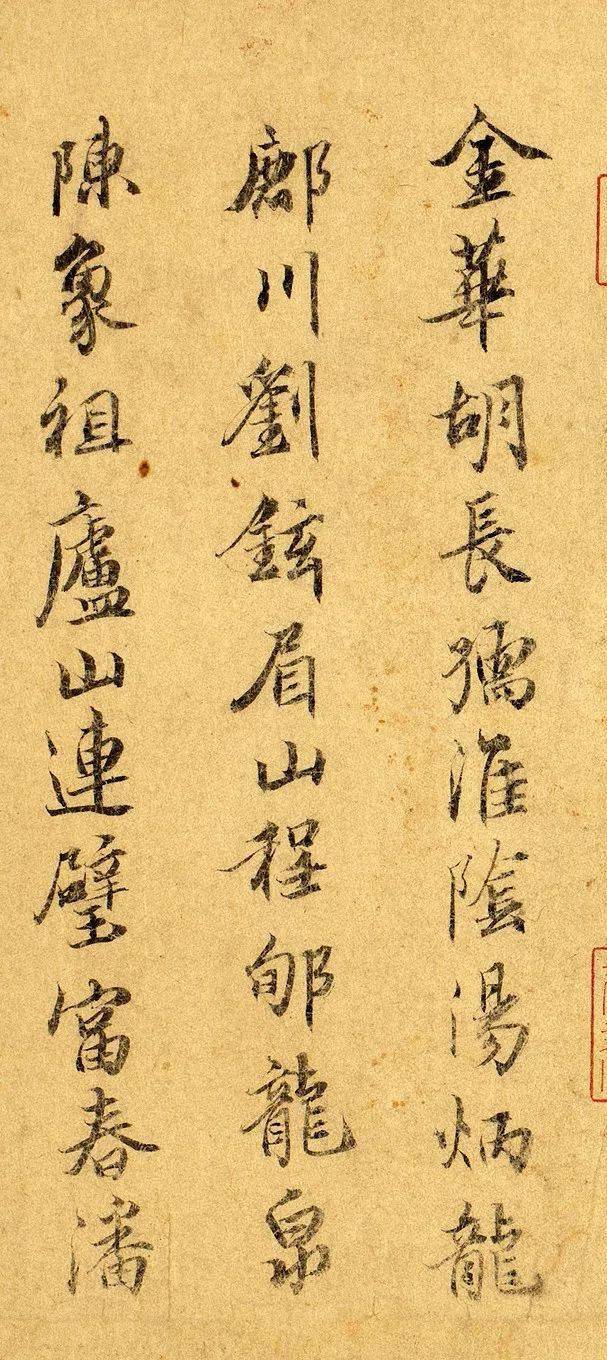 金華胡長孺淮陰湯炳龍
鄜川劉鉉眉山程郇龍泉
陳象祖廬山連璧富春潘